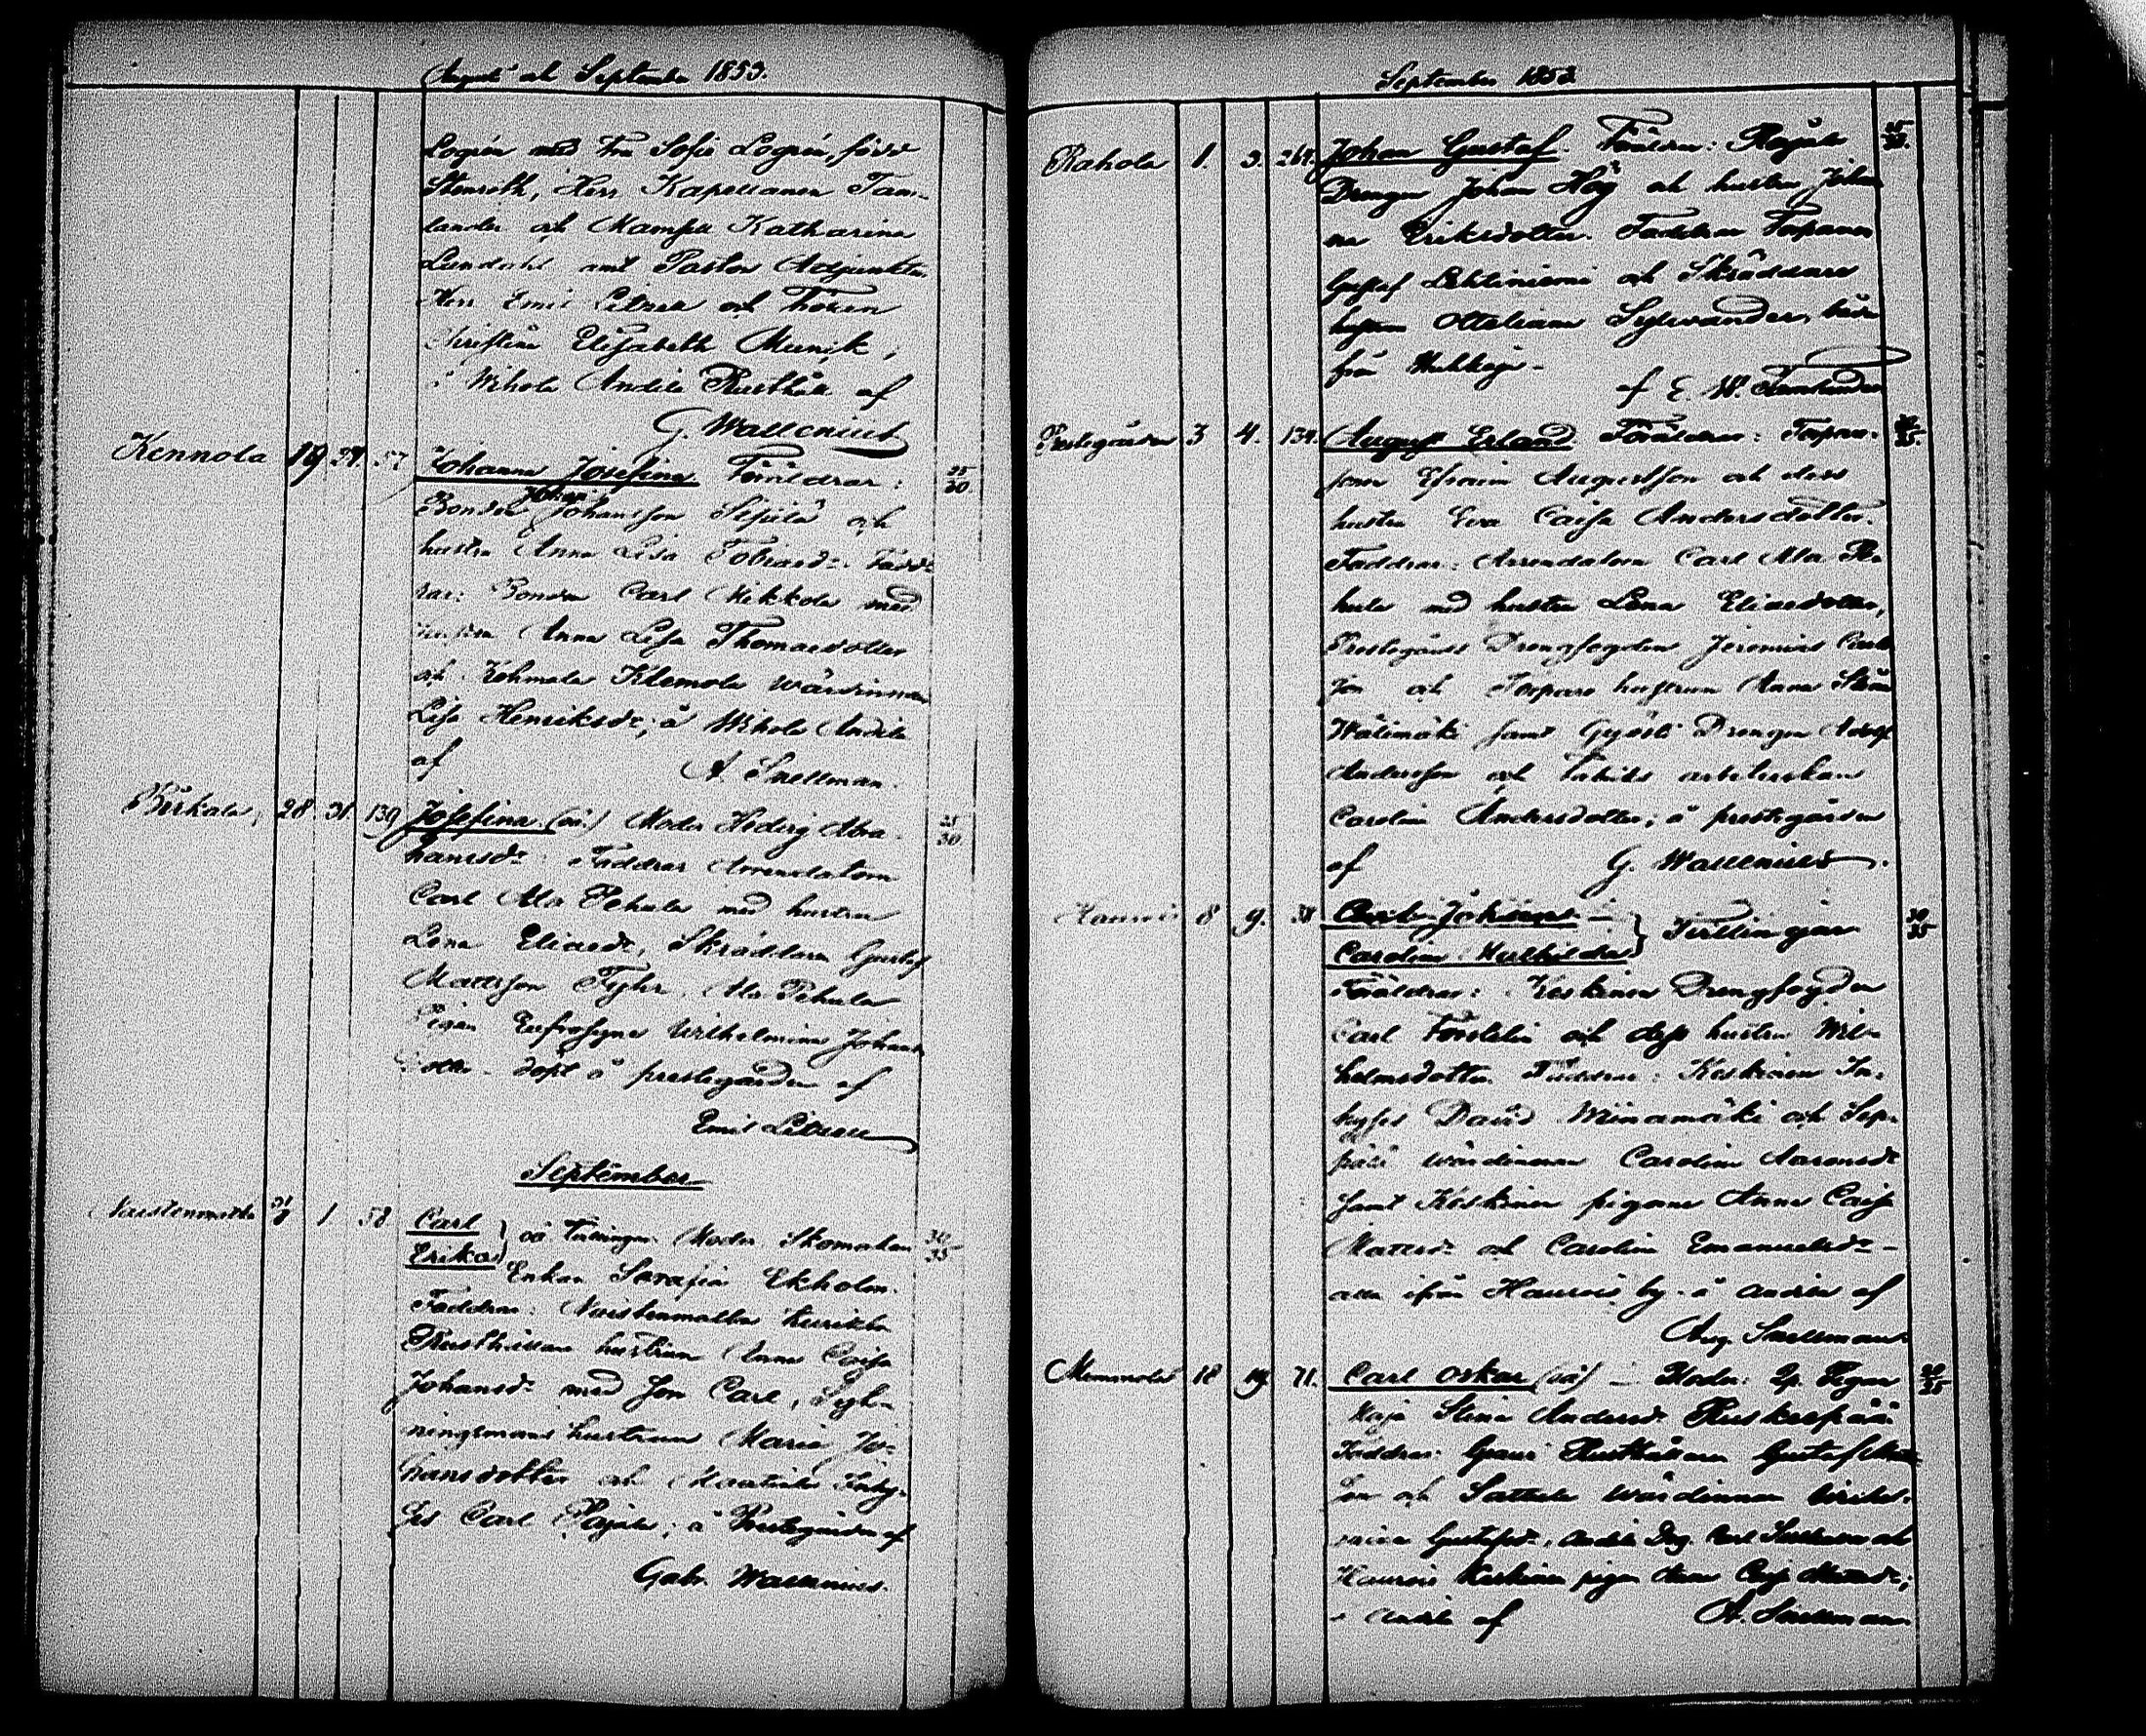 Augusti och September 1853.
Logrén med Fru Sofie Logrén, född
Stenroth, Herr Kapellanen Tam-
lander och Mamsell Katharina
Lundahl samt Pastors Adjunkten
Herr Emil Litzen och Fröken
Christina Elisabeth Munck,
Wihola Andila Rusthåll af
G. Wallenius
Kennola 19 27. 57 Johanna Josefina Föräldrar: 25/30.
Johan
Bonden Johansson Sipilä och
hustru Anna Lisa Tobiasdr. Fadd-
rar: Bonden Carl Mikkola med
hustru Anna Lisa Thomasdotter
och Klemola wärdinnan
Lisa Henriksdr; å Wihola Andila
af A. Snellman.
Birkala, 28. 31. 139 Josefina (oä.) Moder Hedvig Abra- 25/30.
hamsdr. Faddrar Arrendatorn
Carl Ala Pehula med hustru
Lena Eliaedr, Skräddaren Gustaf
Mattsson Fyhr, Ala Pehula
Pigan Eufrosyne Wilhelmina Johans
dotter. döpt å prestegården af
Emil Litzen
September
Naistenmatka 31/8 1 58 Carl } oä Tvillingar. Moder Skomakare 30/35
Erika } Enkan Serafia Ekholm.
Faddrar: Naistenmatka
Rusthållare hustrun Anna Caisa
Johansdr. med son Carl, Syt-
ningsmans hustrun Maria Jo-
hansdotter och Inhy-
ses Carl Pajula; å Prestegården af
Gabr. Wallenius.
September 1853
Rahola 1. 3. 264. Johan Gustaf. Föräldrar: 25/30.
Drengen Johan Hög och hustru Johan-
na Eriksdotter. Faddrar Torparen
Gustaf Lehtiniemi och Skräddare
hustrun Ottiliana Sylvander, både
från
af E. W. Tamlander
Prestegården 3 4. 134. August Erland. Föräldrar: Torpare- 30/35.
sonen Efraim Augustsson och dess
hustru Eva Caisa Andersdotter.
Faddrar: Arrendatorn Carl Ala Pe-
hula med hustru Lena Eliaedotter,
Prestegårds Drengfogden Jeremias Carls
son och Torpare hustrun Anna Stina
Wälimäki samt Drengen Adolf
Andersson och arbeterskan
Carolina Andersdotter; å prestegården
af G. Wallenius.
Haurois 8 9. 38. Carl Johan } Tvillingar 30/35
Carolina Mathilda }
Föräldrar: Keskinen Drengfogden
Carl Forstelin och dess hustru Wil-
helmsdotter. Faddrar: Keskinen In-
hyses David Miinamäki och Sep-
pälä wärdinnan Carolina Aaronsdr
samt Keskinen pigorna Anna Caisa
Mattsdr och Carolina Emanuelsdr -
alla ifrån Haurois by. å Andila af
Aug. Snellman.
18 19. 71. Carl Oskar (oä) - Moder: Pigan 30/35
Maja Stina Andersdr Ruskeepää.
Faddrar: Rusthållaren Gustaf
son och Sattula wärdinnan Wilhel-
mina Gustafsdr, Andila Drg. Carl och
Haurois Keskinen pigan Anna Caisa Mattsdr;
å Andila af A. Snellman.